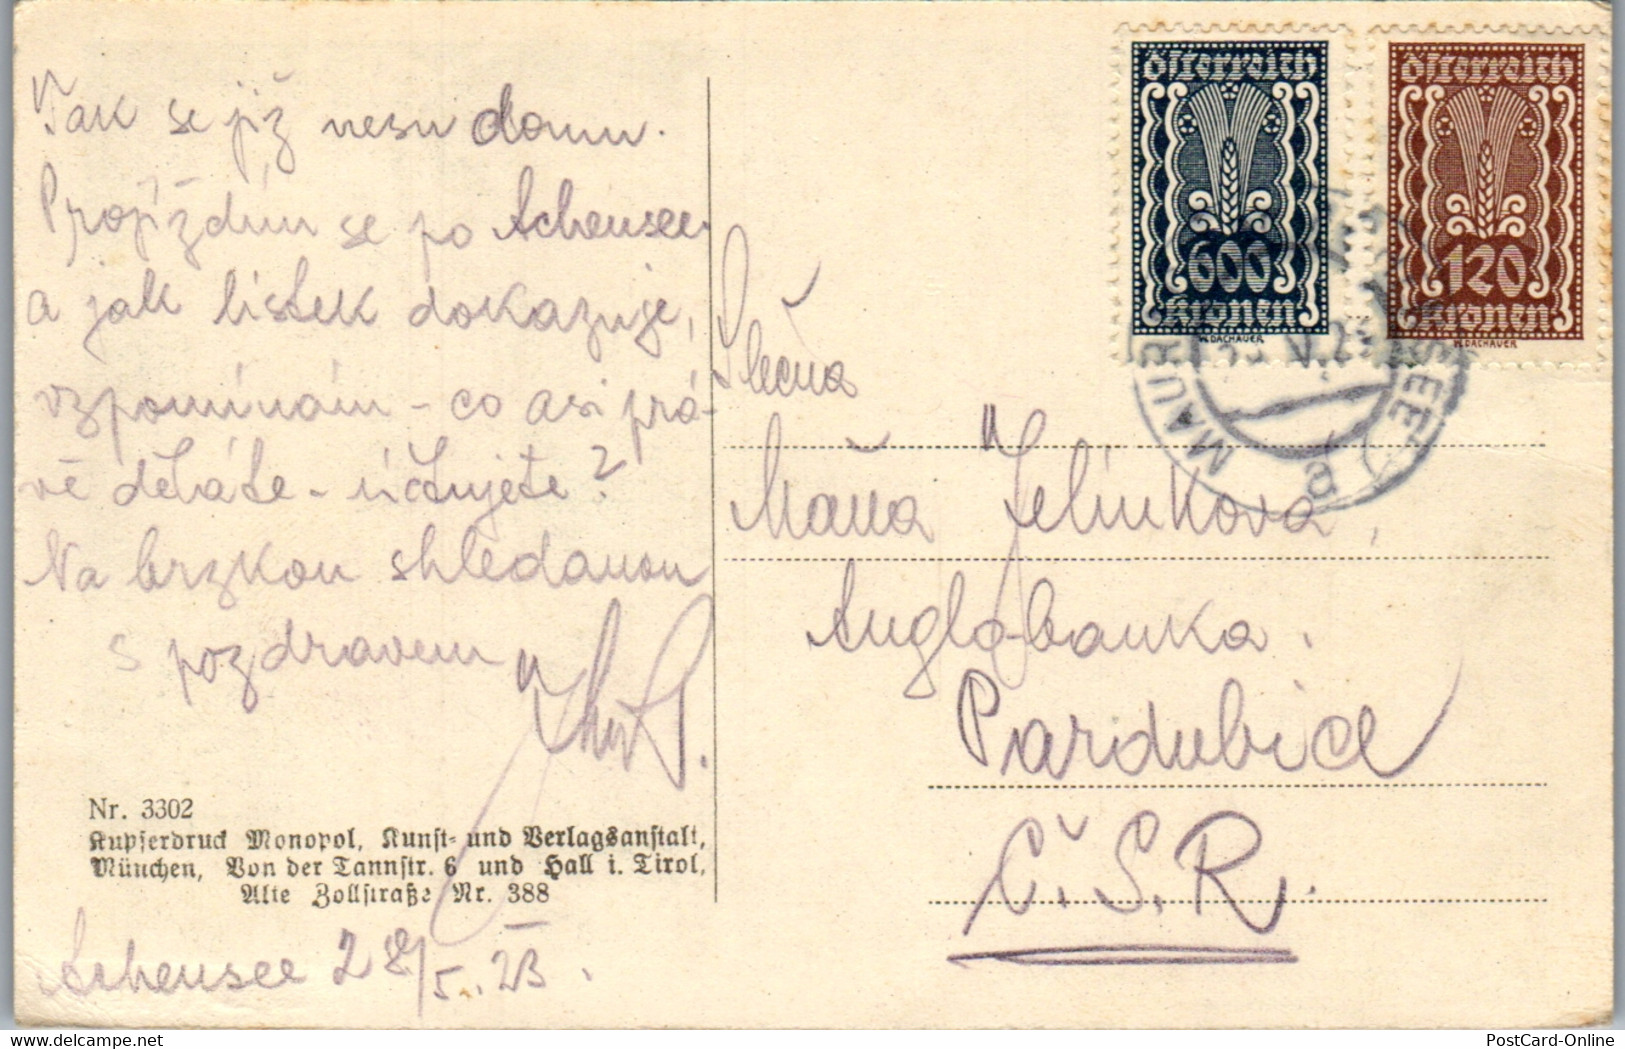 Tak se již nesu domu.
Projíždím se po Achensee
a jak lístek dokazuje,
vzpomínám - co asi prá-
vě děláte - účtujete?
Na brzkou shledanou
s pozdravem
Nr. 3302
Kupferdruck Monopol, Kunst- und Verlagsanstalt,
München, Von der Tannstr. 6 und Hall i. Tirol,
Alte Zollstraße Nr. 388
Achensee 28/5. 23.
Slečna
Máňa Jelínková,
Anglobanka.
Pardubice
Č.S.R.
Österreich
600
Kronen
W.DACHAUER
Österreich
120
Kronen
W.DACHAUER
MAUR
SEE
a
PostCard-Online
www.delcampe.net